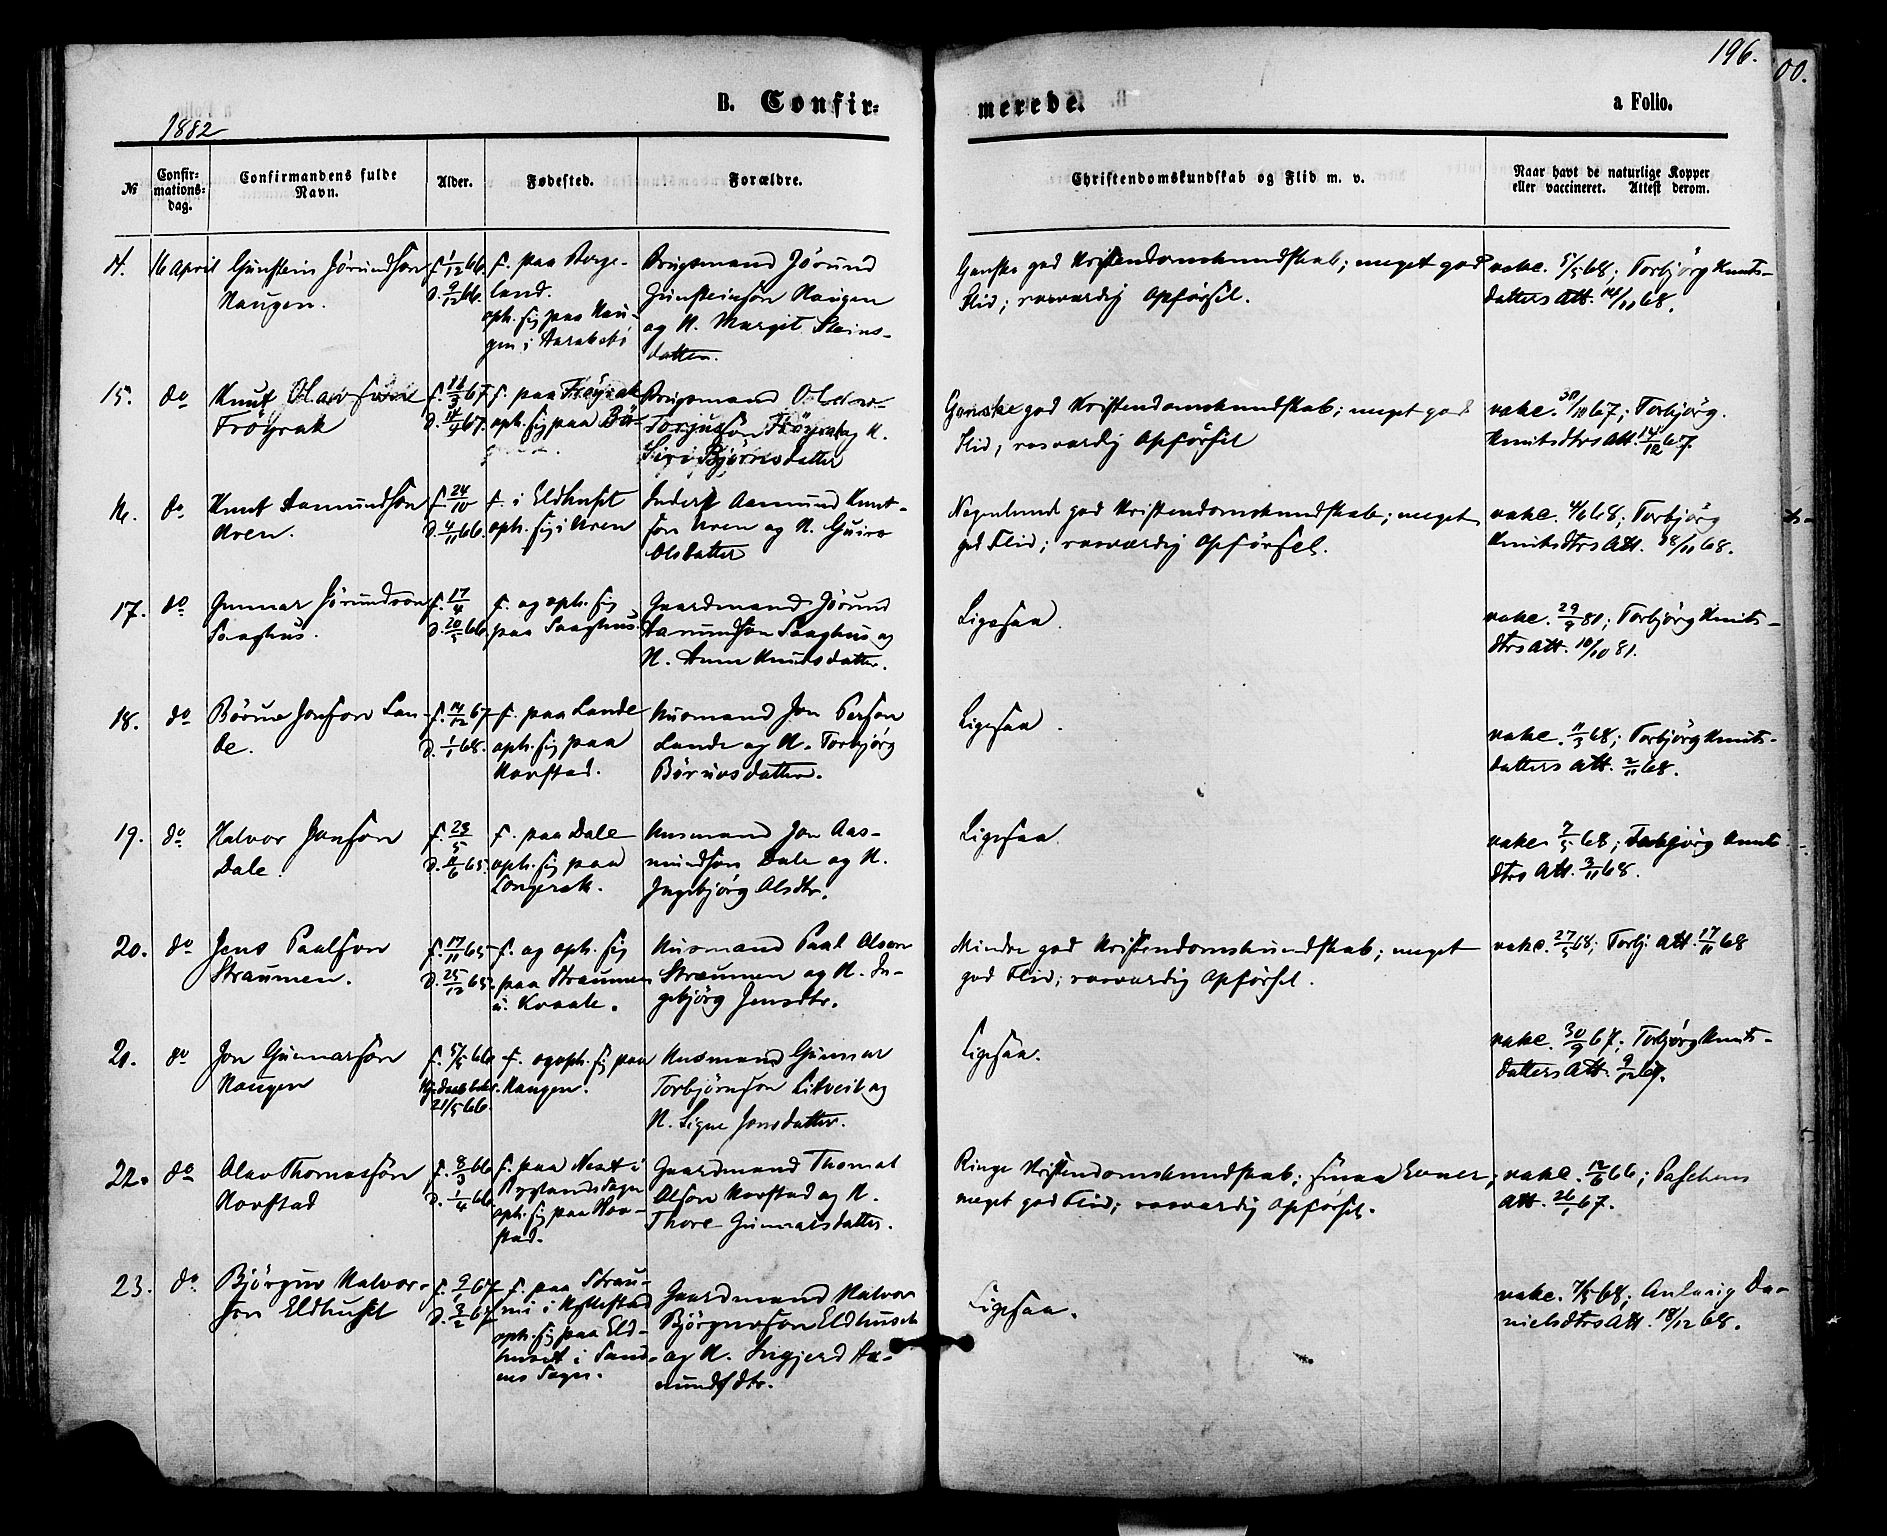 196.
00.
B. Confir=
merede.
a Folio.
1882
№
Confir-
mations-
dag.
Confirmandens fulde
Navn.
Alder.
Fødested.
Forældre.
Christendomskundskab og Flid m. v.
Naar havt de naturlige Kopper
eller vaccineret. Attest derom.
16 April Gunstein Jörundsön
Haugen.
f. 1/12 66.
d. 9/12 66.
f. paa Berge-
land.
oph. sig paa Hau-
gen i
Brugsmand Jörund
Gunsteinsön Haugen
og H. Margit Steins-
datter.
Ganske god Kristendomskundskab; meget god
Flid; rosværdig Opförsel.
vakc. 5/5 68; Torbjörg Knuts-
datters Att. 14/11 68.
15. do Knut Olavssön
Fröyrak
f. 11/3 67.
d. 14/4 67.
f. paa Fröyrak
oph. sig paa
Brugsmand
Torjussön Fröyrak og H.
Siri Björnsdatter
Ganske god Kristendomskundskab; meget god
Flid, rosværdig Opförsel
vakc. 30/10 67; Torbjörg
Knutsdtrs Att. 14/12 67.
16. do Knut Aamundsön
Uren.
f. 24/10
d. 4/11 66.
f. i Eldhuset
oph. sig i Uren
Inderst Aamund Knut-
sön Uren og H. Guro
Olsdatter
Nogenlunde god Kristendomskundskab; meget
god Flid; rosværdig Opförsel.
vakc. 4/6 68; Torbjörg
Knutsdtrs Att. 18/11 68.
17. do Gunnar Jörundson
Saaghus.
f. 17/4
d. 20/5 66.
f. og oph. sig
paa Saaghus.
Gaardmand Jörund
Saaghus og
H. Anne Knutsdatter.
Ligesaa.
vakc. 29/9 81; Torbjörg Knuts-
dtrs Att. 10/10 81.
18. do Börue Jonson Lan-
de.
f. 14/12 67
d. 1/1 68.
f. paa Lande
oph. sig paa
Horstad.
Husmand Jon Person
Lande og H. Torbjörg
Böruvsdatter.
Ligesaa.
vakc. 11/5 68; Torbjörg Knuts-
datters Att. 2/11 68.
19. do Halvor Jonson
Dale.
f. 23/5
d. 11/6 65.
f. paa Dale
oph. sig paa
Longerak.
Husmand Jon Aas-
mundsön Dale og H.
Ingebjörg Olsdtr.
Ligesaa.
vakc. 7/5 68; Torbjörg Knuts
dtrs Att. 3/11 68.
20. do Jens Paalson
Straumen.
f. 17/11 65
d. 25/12 65.
f. og oph. sig
paa Straumen
u. Kvaale.
Husmand Paal Olson
Straumen og H. In-
gebjörg Jensdtr.
Mindre god Kristendomskundskab; meget
god Flid; rosværdig Opförsel.
vakc. 27/5 68; Torbj. Att. 17/11 68
21. do Jon Gunnarsön
Haugen
f. 5/5 66
21/5 66.
f. og oph. sig paa
Haugen.
Husmand Gunnar
Torbjörnson Litveit og
H. Signe Jonsdatter.
Ligesaa.
vakc. 30/9 67; Torbjörg Knuts-
datters Att. 9/12 67.
22. do Olav Thomassön
Horstad
f. 8/3 66
d. 1/4 66
f. paa Neset i
Byglands Sogn
oph. sig paa Hor-
stad.
Gaardmand Thomas
Olson Horstad og H.
Thore Gunnarsdatter.
Ringe Kristendomskundskab; smaa Evner;
meget god Flid; rosværdig Opförsel.
vakc. 12/6 66; Paschens
Att. 26/1 67.
23. do Björguv Halvor-
son Eldhuset
f. 9/1 67
d. 3/2 67
f. paa Strau-
me i Hyllestad
oph. sig paa Eld-
huset i Sand-
nes Sogn.
Gaardmand Halvor
Björguvson Eldhuset
og H. Sigjerd Aa-
mundsdtr.
Ligesaa.
vakc. 7/5 68; Anlaug Da-
nielsdtrs Att. 18/12 68.